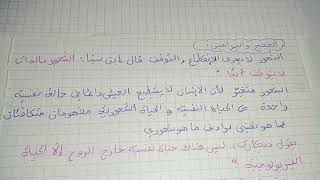 الحجج والبراهين:
الشعور لا يعرف الانقطاع والتوقف قال ابن سينا: الشعور بالذات
لا يتوقف أبدا"
الشعور متغير لأن الإنسان لا يستطيع العيش دائما في حالة نفسية
واحدة => الحياة النفسية والحياة الشعورية مفهومان متكافئان
فما هو نفسي يرادف ما هو شعوري
يقول ديكارت "ليس هناك حياة نفسية خارج الروح إلا الحياة
الفيزيولوجية"